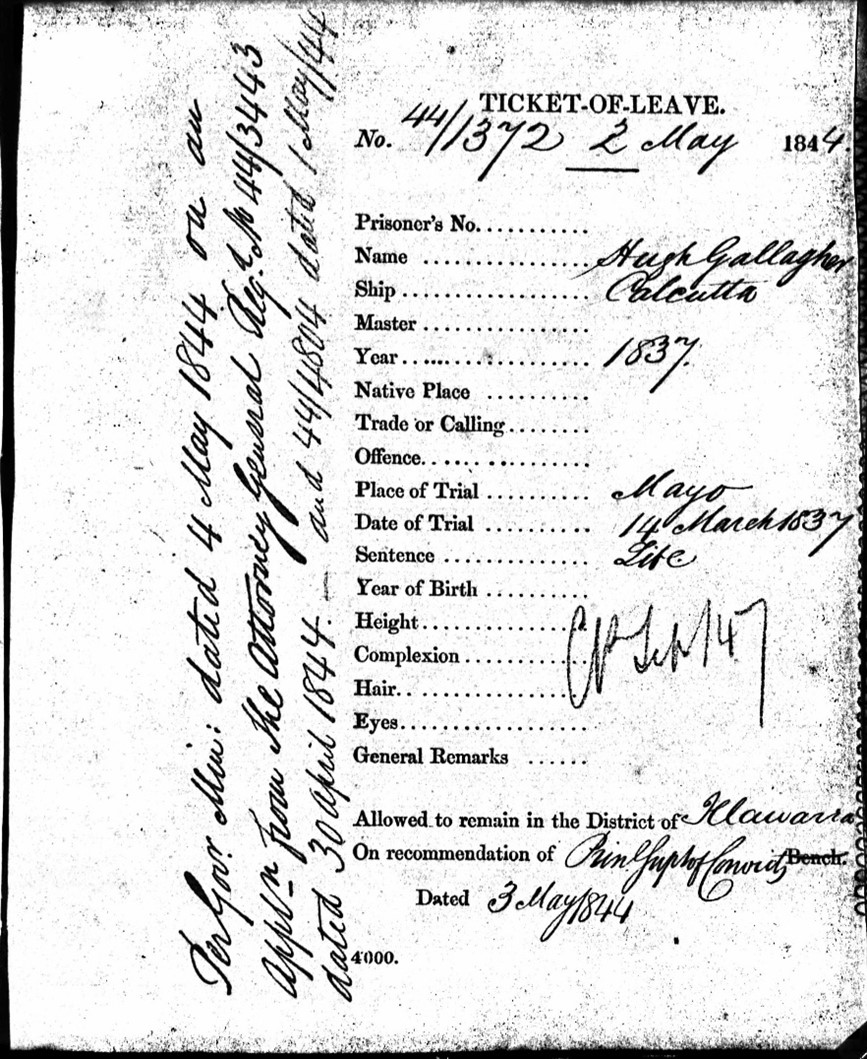 TICKET-OF-LEAVE.
No. 44/1372 2 May 1844.
Prisoner's No.
Name Hugh Gallagher
Ship Calcutta
Master
Year 1837.
Native Place
Trade or Calling
Offence
Place of Trial Mayo
Date of Trial 14 March 1837
Sentence Life
Year of Birth
Height
Complexion
Hair
Eyes
General Remarks
CP Sep 147
Allowed to remain in the District of Illawarra
On recommendation of Prinl Supt of Convicts Bench.
Dated 3 May 1844
4000.
Per Govr Min: dated 4 May 1844 on an
Appln from The Attorney General Regd No 44/3443
dated 30 April 1844. — and 44/4804 dated 1 May/44